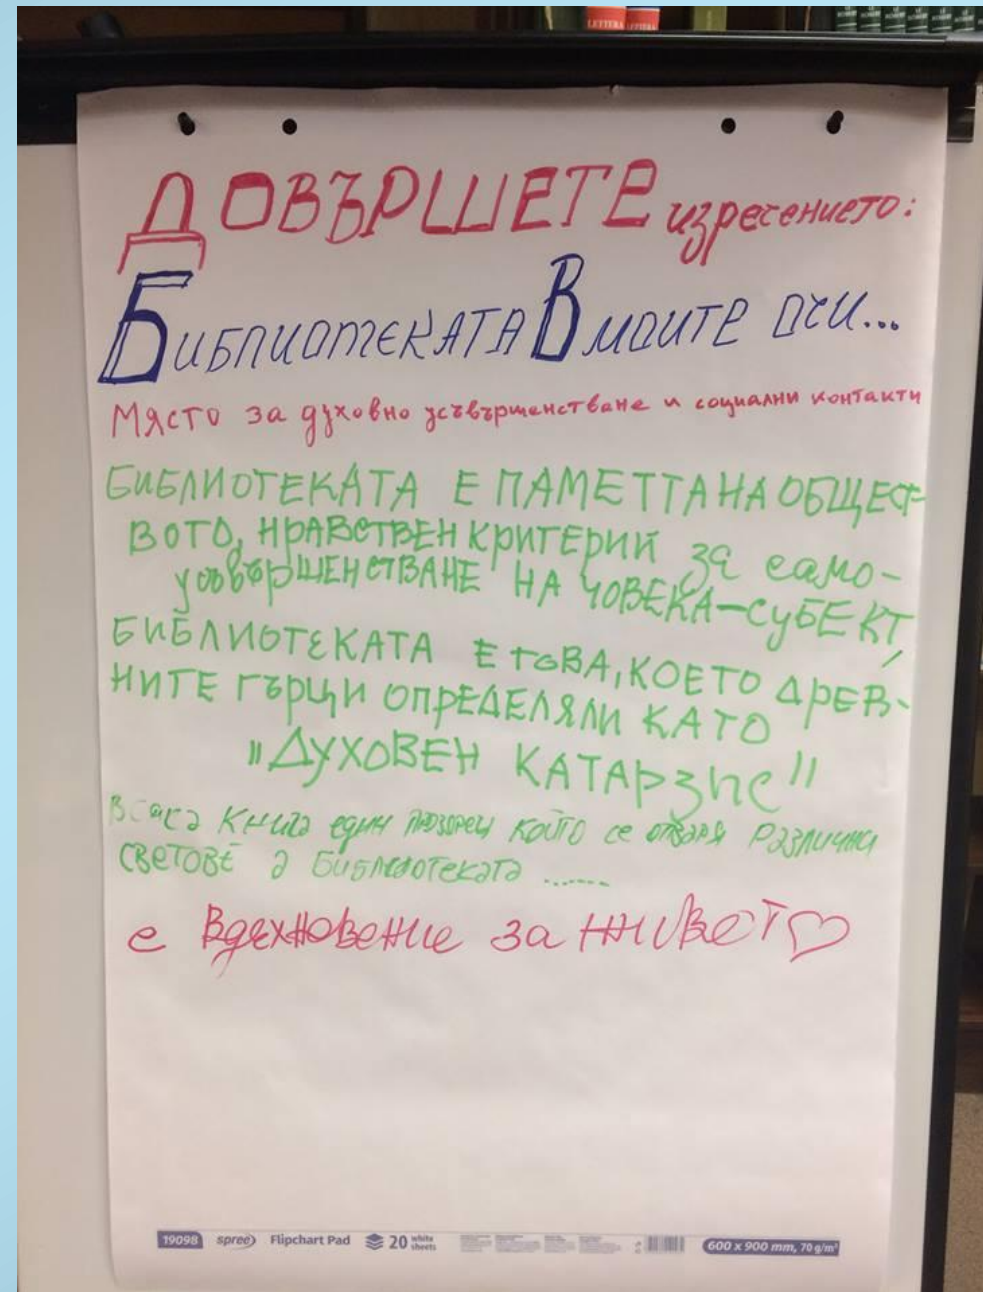 LETTERA LETTERA
ДОВЪРШЕТЕ изречението:
БИБЛИОТЕКАТА В МОИТЕ ОЧИ...
Място за духовно усъвършенстване и социални контакти
БИБЛИОТЕКАТА Е ПАМЕТТА НА ОБЩЕСТ
ВОТО, НРАВСТВЕН КРИТЕРИЙ за само-
усъвършенстване НА ЧОВЕКА-СУБЕКТ,
БИБЛИОТЕКАТА Е ТОВА, КОЕТО ДРЕВ-
НИТЕ ГЪРЦИ ОПРЕДЕЛЯЛИ КАТО
"ДУХОВЕН КАТАРЗИС"
Всяка книга един прозорец който се отваря различни
СВЕТОВЕ а Библиотеката ......
е Вдъхновение за живот♡
19098 spree Flipchart Pad 20 white sheets 600 x 900 mm, 70 g/m²